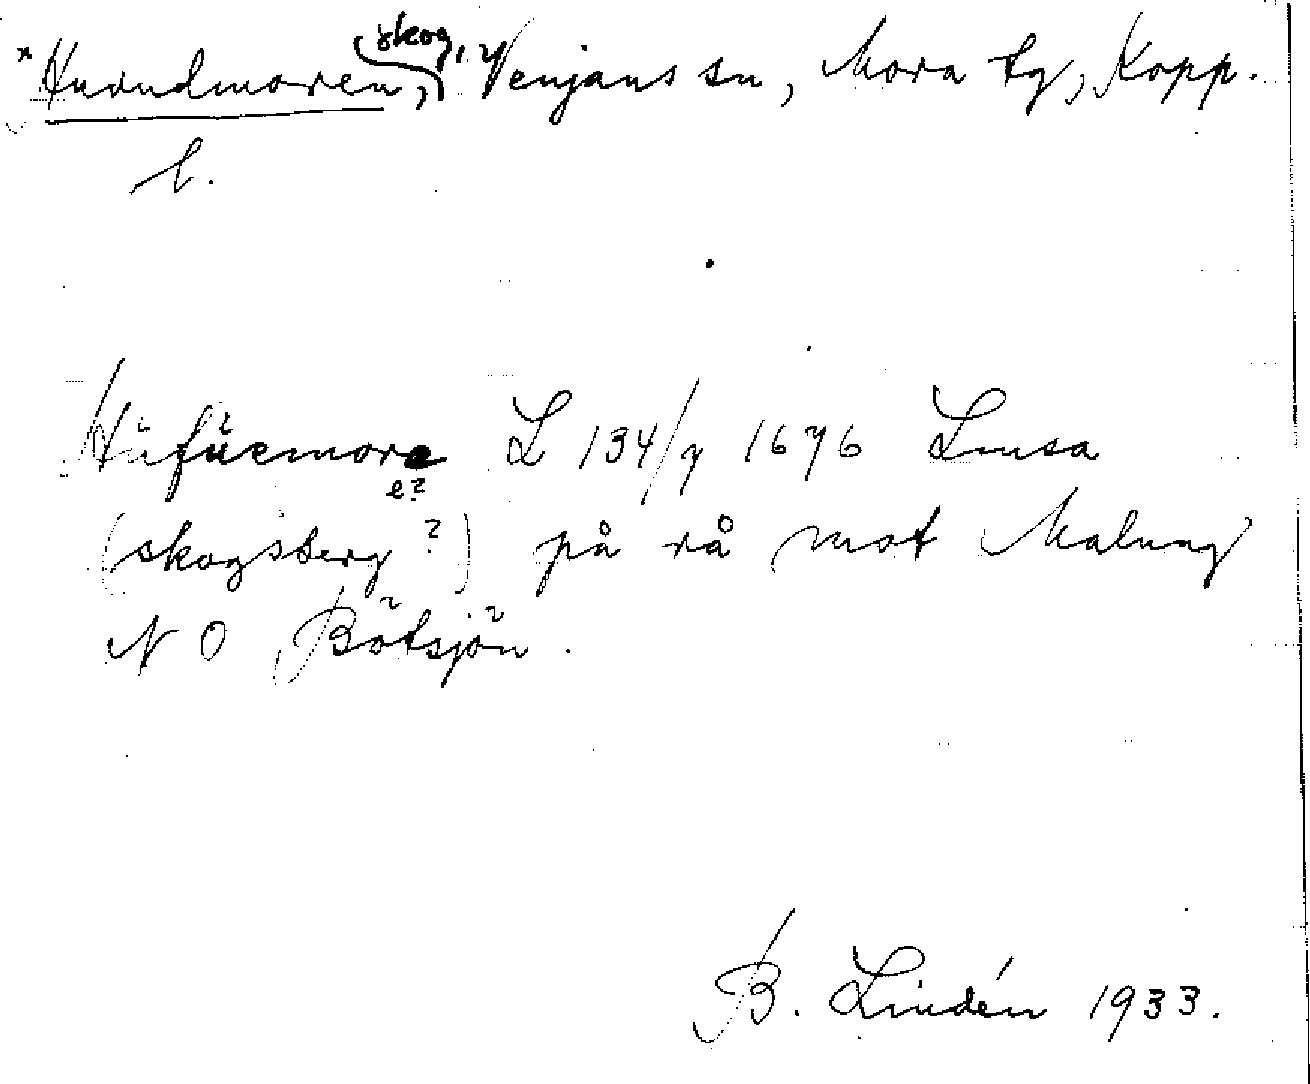 *Huvudmoren, skog, Venjans sn, Mora tg, Kopp.
l.
Hufuemore L 134/7 1676 Linsa
e?
(skogsberg?) på rå mot Malung
NO Bötsjön.
B. Lindén 1933.